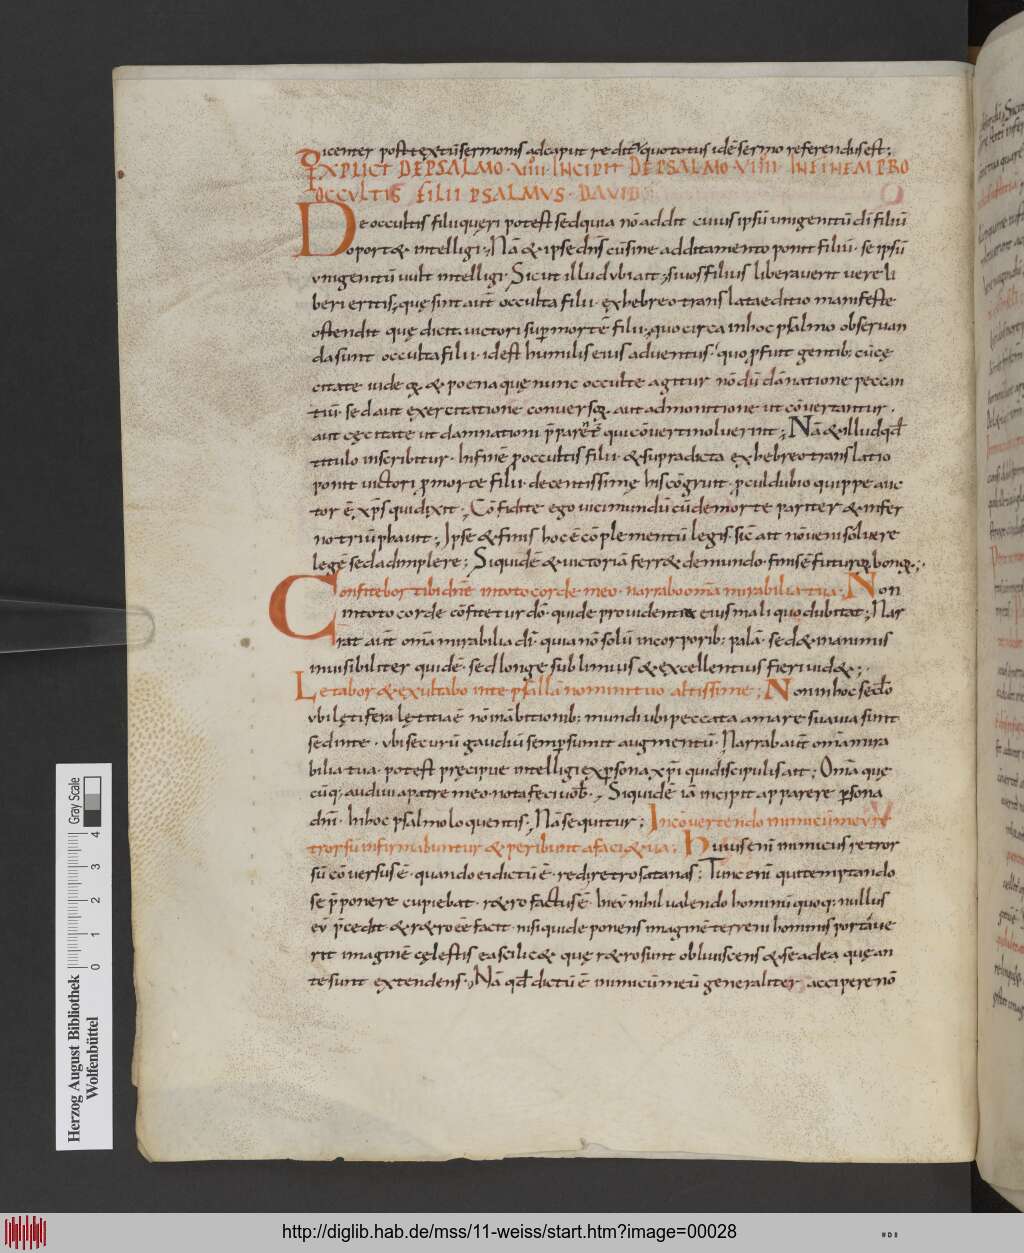 dicenter post textū sermonis ad caput redit quo totus idē sermo referendus est;
EXPLICT DE PSALMO VIII INCIPIT DE PSALMO VIIII IN FINEM PRO
OCCVLTIS FILII PSALMVS DAVID
De occultis filii quęri potest sed quia nō addit cuius ipsū unigenitū di filiū
oport& intelligi; Nā & ipse dn̄s cū sine additamento ponit filiū se ipsū
unigenitū uult intelligi Sicut illud ubi ait; si uos filius liberauerit uere li
beri eritis; quę sint aut̄ occulta filii ex hebreo translata editio manifeste
ostendit quę dicit uictori sup morte filii; quocirca in hoc psalmo obseruan
da sunt occulta filii id est humilis eius aduentus quo pfuit gentib; cū cę
citate iudeoꝝ & poena quę nunc occulte agitur nōdū dānatione peccan
tiū sed aut exercitatione conuersoꝝ aut admonitione ut cōuertantur
aut cęcitate ut damnationi p̄parētē qui cōuerti noluerint; Nā & illud qd̄
titulo inscribitur In finē p occultis filii & supradicta ex hebreo translatio
ponit uictori p morte filii decentissimę his cōgruit pculdubio quippe auc
tor ē xp̄s qui dixit; Cōfidite ego uici mundū cū de morte pariter & infer
no triūphauit; Ipse & finis hoc ē cōplementū legis sic̄ ait nō ueni soluere
legē sed adimplere; Siquidē & uictoriā ferr& de mundo finis ē futuroꝝ bonoꝝ;
Confitebor tibi dn̄e in toto corde meo narrabo om̄a mirabilia tua; Non
in toto corde cōfitetur dō qui de prouidentia eius mali quo dubitat; Nar
rat aut̄ om̄a mirabilia di quia nō solū in corporib; palā sed & in animis
inuisibiliter quidē sed longe sublimius & excellentius fieri uid&;
Letabor & exultabo in te psallā nomini tuo altissime; Non in hoc sēdo
ubi lętifera lętitia ē nō in ābitionib; mundi ubi peccata amare suauia sunt
sed in te ubi securū gaudiū semp sumit augmentū Narrab aut̄ om̄a mira
bilia tua potest pręcipue intelligi ex psona xpi qui discipulis ait; Om̄a quę
cūq; audiui a patre meo nota feci uob; Siquidē iā incipit apparere psona
dn̄i In hoc psalmo loquentis; Nā sequitur; In conuertendo inimicū meū re
trorsū infirmabuntur & peribunt a facie tua; Huius eni inimicus retror
sū cōuersus ē quando ei dictū ē redi retro satanas; Tunc eni qui temptando
se p̄ponere cupiebat retro factus ē in eū nihil ualendo hominū quoq; nullus
eū p̄cedit & retro eē facit nisi qui deponens imaginē terreni hominis portauē
rit imaginē cęlestis ea scilic& quę retro sunt obliuiscens & se ad ea quę an
te sunt extendens; Nā qd̄ dictū ē inimicū meū generaliter accipere nō
Herzog August Bibliothek
Wolfenbüttel
Gray Scale
0 1 2 3 4
http://diglib.hab.de/mss/11-weiss/start.htm?image=00028